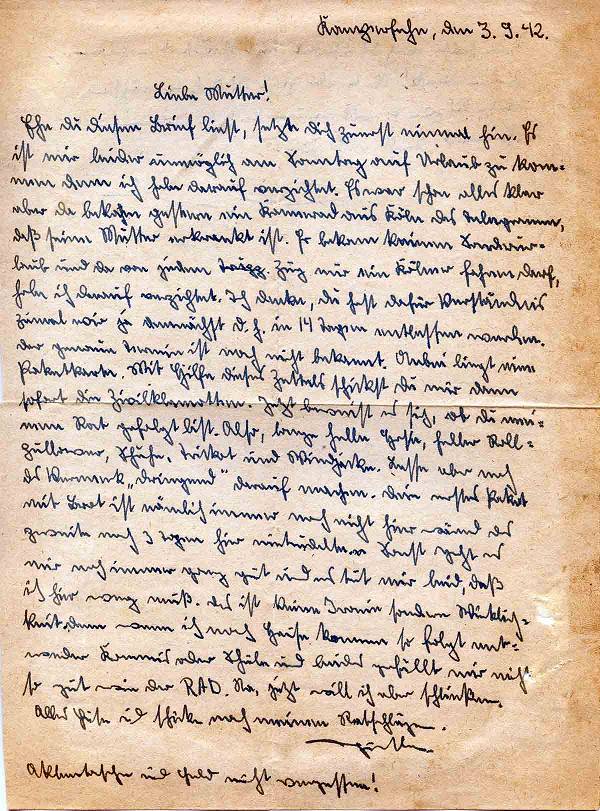 Kamperfehn, den 3.9.42.
Liebe Mutter!
Ehe du diesen Brief liest, setzte dich zuerst einmal hin. Es
ist mir leider unmöglich am Sonntag auf Urlaub zu kom=
men denn ich habe darauf verzichtet. Es war schon alles klar
aber da bekam gestern ein Kamerad aus Köln das Telegramm,
daß seine Mutter erkrankt ist. Er bekam keinen Sonderur-
laub und da von jedem Zug nur ein Kölner fahren darf,
habe ich darauf verzichtet. Ich denke, du hast dafür Verständnis
zumal wir ja demnächst d.h. in 14 Tagen entlassen werden.
Der genaue Termin ist noch nicht bekannt. Anbei liegt eine
Paketkarte. Mit Hilfe dieses Zettels schickst du mir dann
sofort die Zivilklamotten. Jetzt beweist es sich, ob du mei=
nem Rat gefolgt bist. Also, lange helle Hose, heller Roll=
pullover, Schuhe, und Windjacke. Lasse aber noch
das Vermerk „dringend" darauf machen. Dein erstes Paket
mit Brot ist nämlich immer noch nicht hier während das
zweite nach 3 Tagen hier eintrudelte. Sonst geht es
mir noch immer ganz gut und es tut mir leid, daß
ich hier weg muß. Das ist keine Ironie sondern Wirklich=
keit, denn wenn ich nach Hause komme so folgt ent=
weder Kommis oder Schule und beides gefällt mir nicht
so gut wie der RAD. Na, jetzt will ich aber schließen.
Alles Gute und schicke nach meinen Ratschlägen.
Günther
Aktentasche und Geld nicht vergessen!